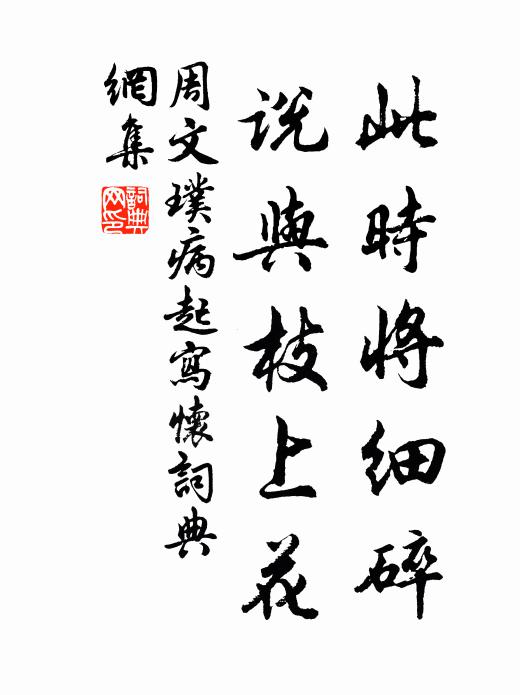 此時將細碎
說與枝上花
周文璞病起寫懷詞典
網集
詞典
网印